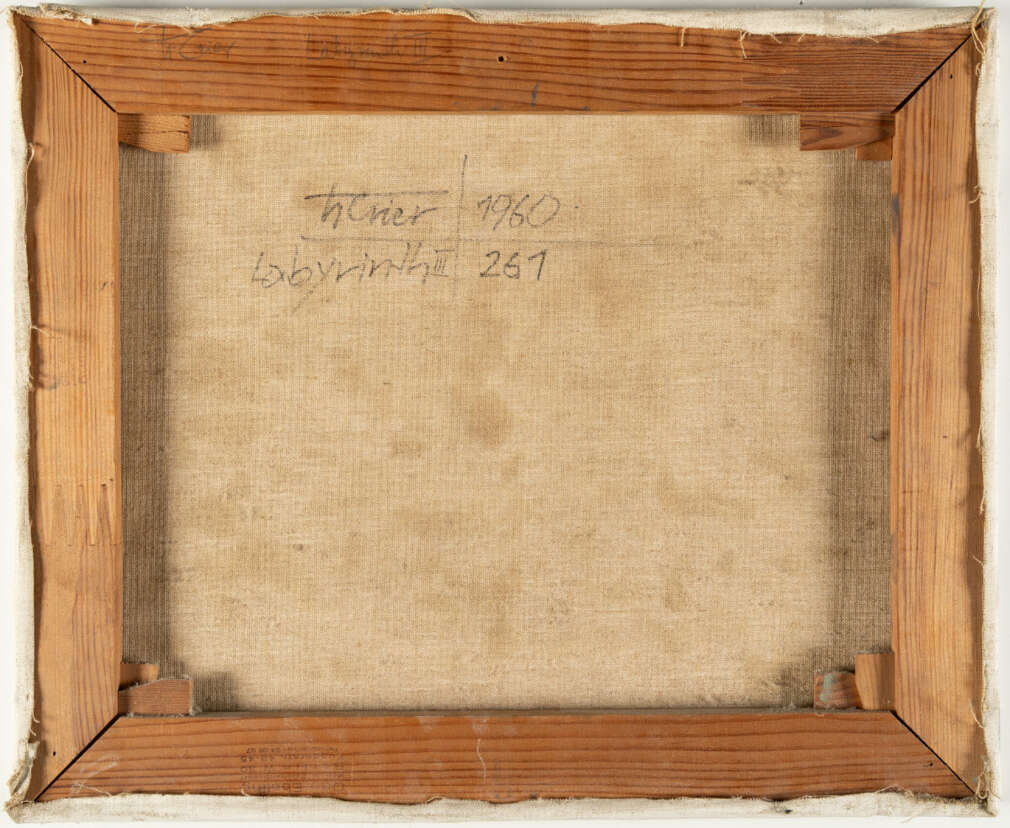 hTrier Labyrinth III
hTrier 1960
Labyrinth III 261